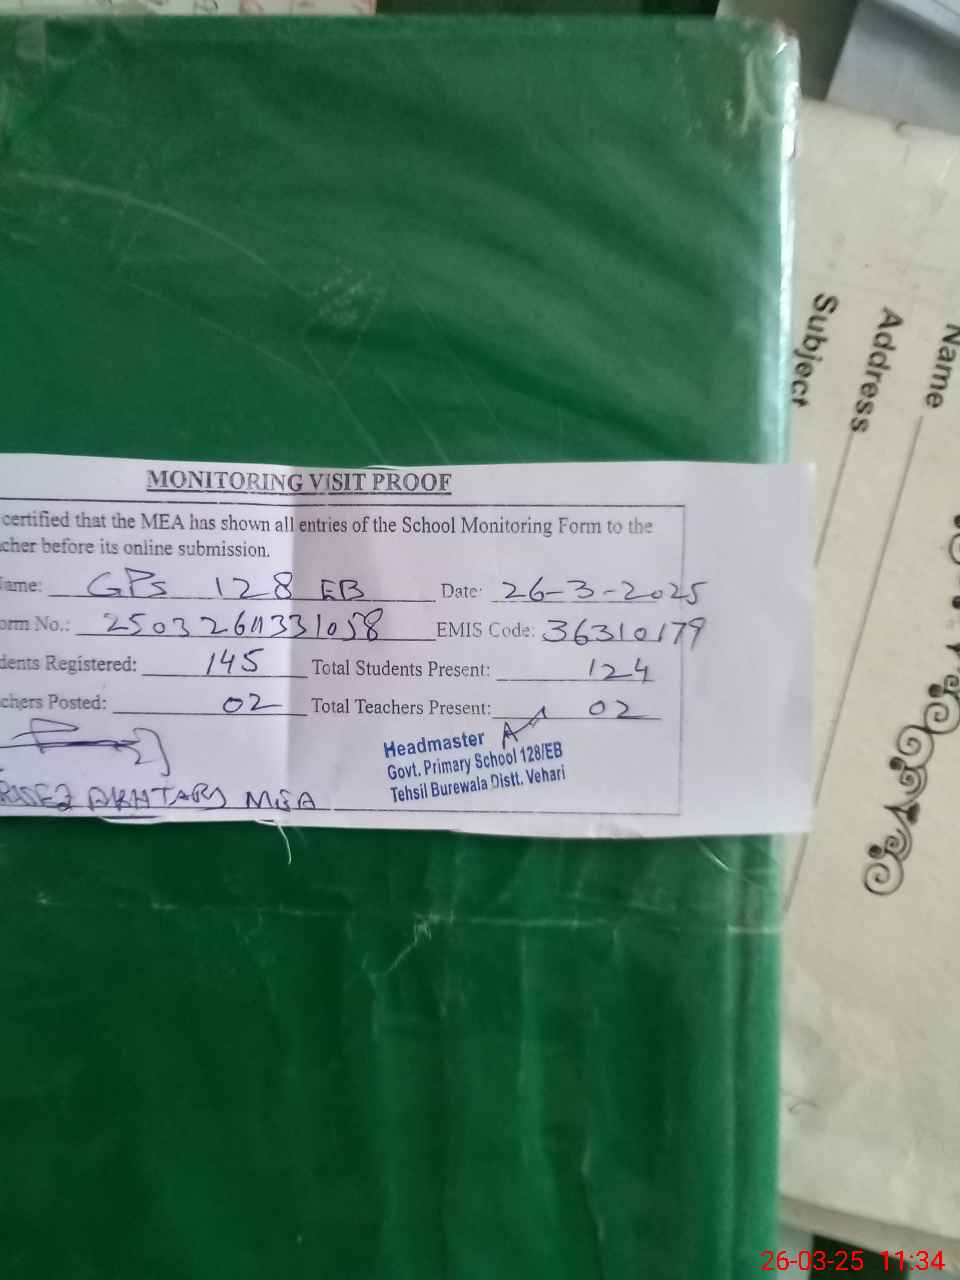 MONITORING VISIT PROOF
certified that the MEA has shown all entries of the School Monitoring Form to the
cher before its online submission.
ame: GPS 128 EB Date: 26-3-2025
orm No.: 25032611331058 EMIS Code: 36310179
dents Registered: 145 Total Students Present: 124
chers Posted: 02 Total Teachers Present: 02
Headmaster
Govt. Primary School 128/EB
Tehsil Burewala Distt. Vehari
AKHTAR MEA
Name
Address
Subject
26-03-25 11:34